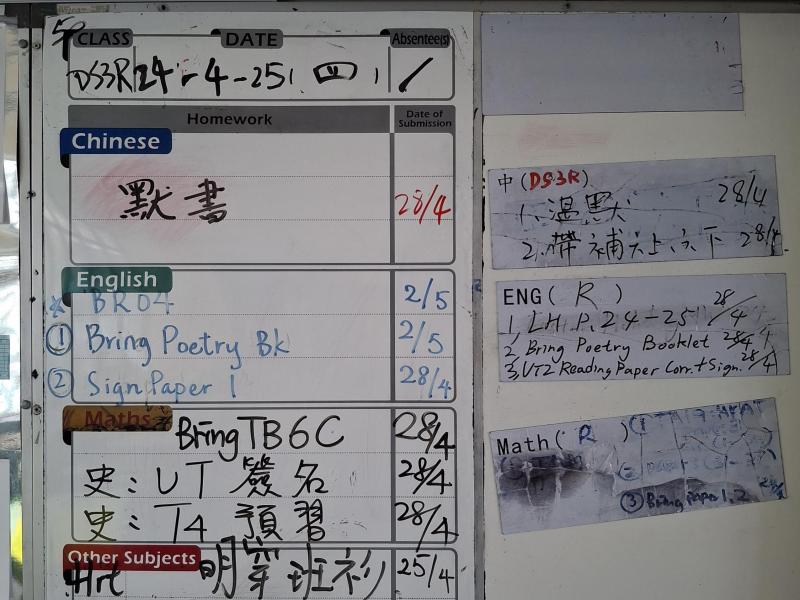 CLASS DATE Absentee(s)
DS3R 24-4-25 (四) /
Homework Date of Submission
Chinese
默書 28/4
English
* BR04 2/5
① Bring Poetry Bk 2/5
② Sign Paper 1 28/4
Maths
Bring TB6C 28/4
史: UT 簽名 28/4
史: T4 預習 28/4
Other Subjects
Hrt 明穿班衫 25/4
中 (DS3R)
1. 溫默 28/4
2. 帶補六上, 六下 28/4
ENG ( R )
1, LH P.24-25 28/4
2, Bring Poetry Booklet 28/4
3, UT2 Reading Paper Corr. + Sign. 28/4
Math ( R ) ①
②
③ Bring Paper 1, 2